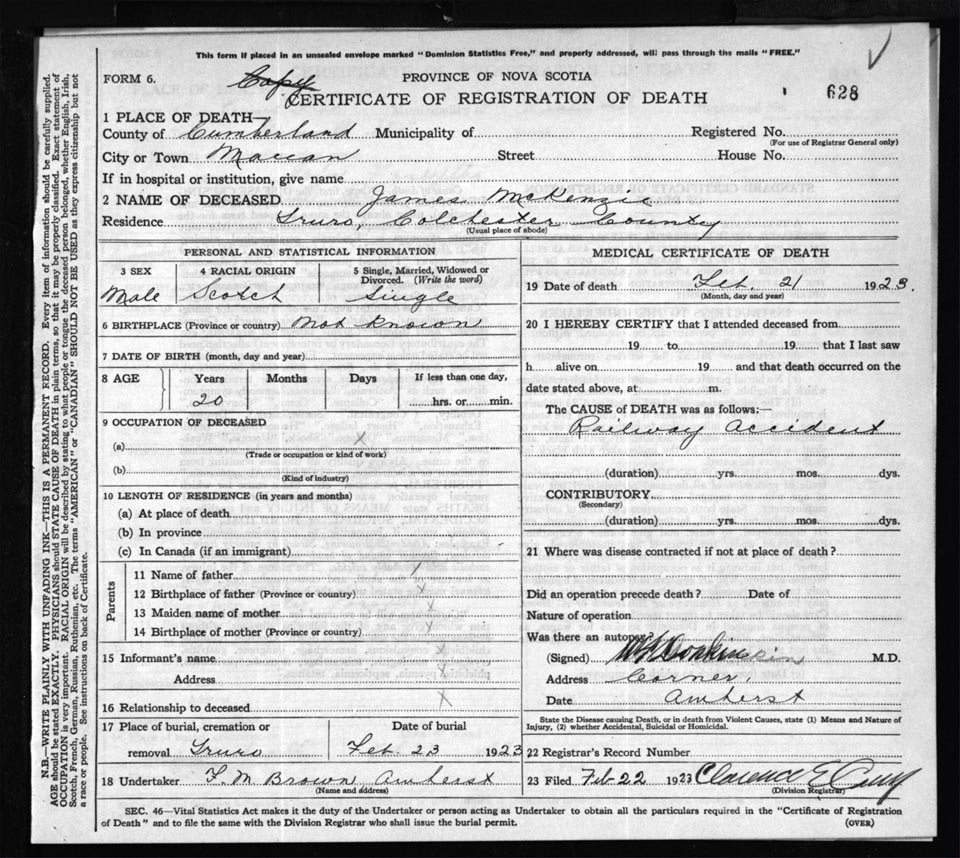 This form if placed in an unsealed envelope marked "Dominion Statistics Free," and properly addressed, will pass through the mails "FREE."
FORM 6. Copy PROVINCE OF NOVA SCOTIA
CERTIFICATE OF REGISTRATION OF DEATH 628
1 PLACE OF DEATH—
County of Cumberland Municipality of Registered No.
(For use of Registrar General only)
City or Town Maccan Street House No.
If in hospital or institution, give name
2 NAME OF DECEASED James McKenzie
Residence Truro, Colchester County
(Usual place of abode)
PERSONAL AND STATISTICAL INFORMATION
3 SEX 4 RACIAL ORIGIN 5 Single, Married, Widowed or Divorced. (Write the word)
Male Scotch Single
6 BIRTHPLACE (Province or country) Not Known
7 DATE OF BIRTH (month, day and year)
8 AGE Years Months Days If less than one day,
20 hrs. or min.
9 OCCUPATION OF DECEASED
(a) X
(Trade or occupation or kind of work)
(b)
(Kind of industry)
10 LENGTH OF RESIDENCE (in years and months)
(a) At place of death
(b) In province
(c) In Canada (if an immigrant)
Parents
11 Name of father X
12 Birthplace of father (Province or country) X
13 Maiden name of mother X
14 Birthplace of mother (Province or country) X
15 Informant's name X
Address X
16 Relationship to deceased X
17 Place of burial, cremation or removal Truro Date of burial Feb. 23 1923
18 Undertaker F. M. Brown Amherst
(Name and address)
MEDICAL CERTIFICATE OF DEATH
19 Date of death Feb. 21 1923.
(Month, day and year)
20 I HEREBY CERTIFY that I attended deceased from
19 to 19 that I last saw
h alive on 19 and that death occurred on the
date stated above, at m.
The CAUSE of DEATH was as follows:—
Railway Accident
(duration) yrs. mos. dys.
CONTRIBUTORY
(Secondary)
(duration) yrs. mos. dys.
21 Where was disease contracted if not at place of death?
Did an operation precede death? Date of
Nature of operation
Was there an autopsy
(Signed) M.D.
Address Corner,
Date Amherst
State the Disease causing Death, or in death from Violent Causes, state (1) Means and Nature of Injury, (2) whether Accidental, Suicidal or Homicidal.
22 Registrar's Record Number
23 Filed Feb 22 1923 Clarence E
(Division Registrar)
SEC. 46—Vital Statistics Act makes it the duty of the Undertaker or person acting as Undertaker to obtain all the particulars required in the "Certificate of Registration
of Death" and to file the same with the Division Registrar who shall issue the burial permit. (OVER)
N.B.—WRITE PLAINLY WITH UNFADING INK—THIS IS A PERMANENT RECORD. Every item of information should be carefully supplied.
AGE should be stated EXACTLY. PHYSICIANS should STATE CAUSE OF DEATH in plain terms, so that it may be properly classified. Exact statement of
OCCUPATION is very important. RACIAL ORIGIN will be described by stating to what people or tongue the deceased person belonged, whether English, Irish,
Scotch, French, German, Russian, Ruthenian, etc. The terms "AMERICAN" or "CANADIAN" SHOULD NOT BE USED as they express citizenship but not
a race or people. See instructions on back of Certificate.